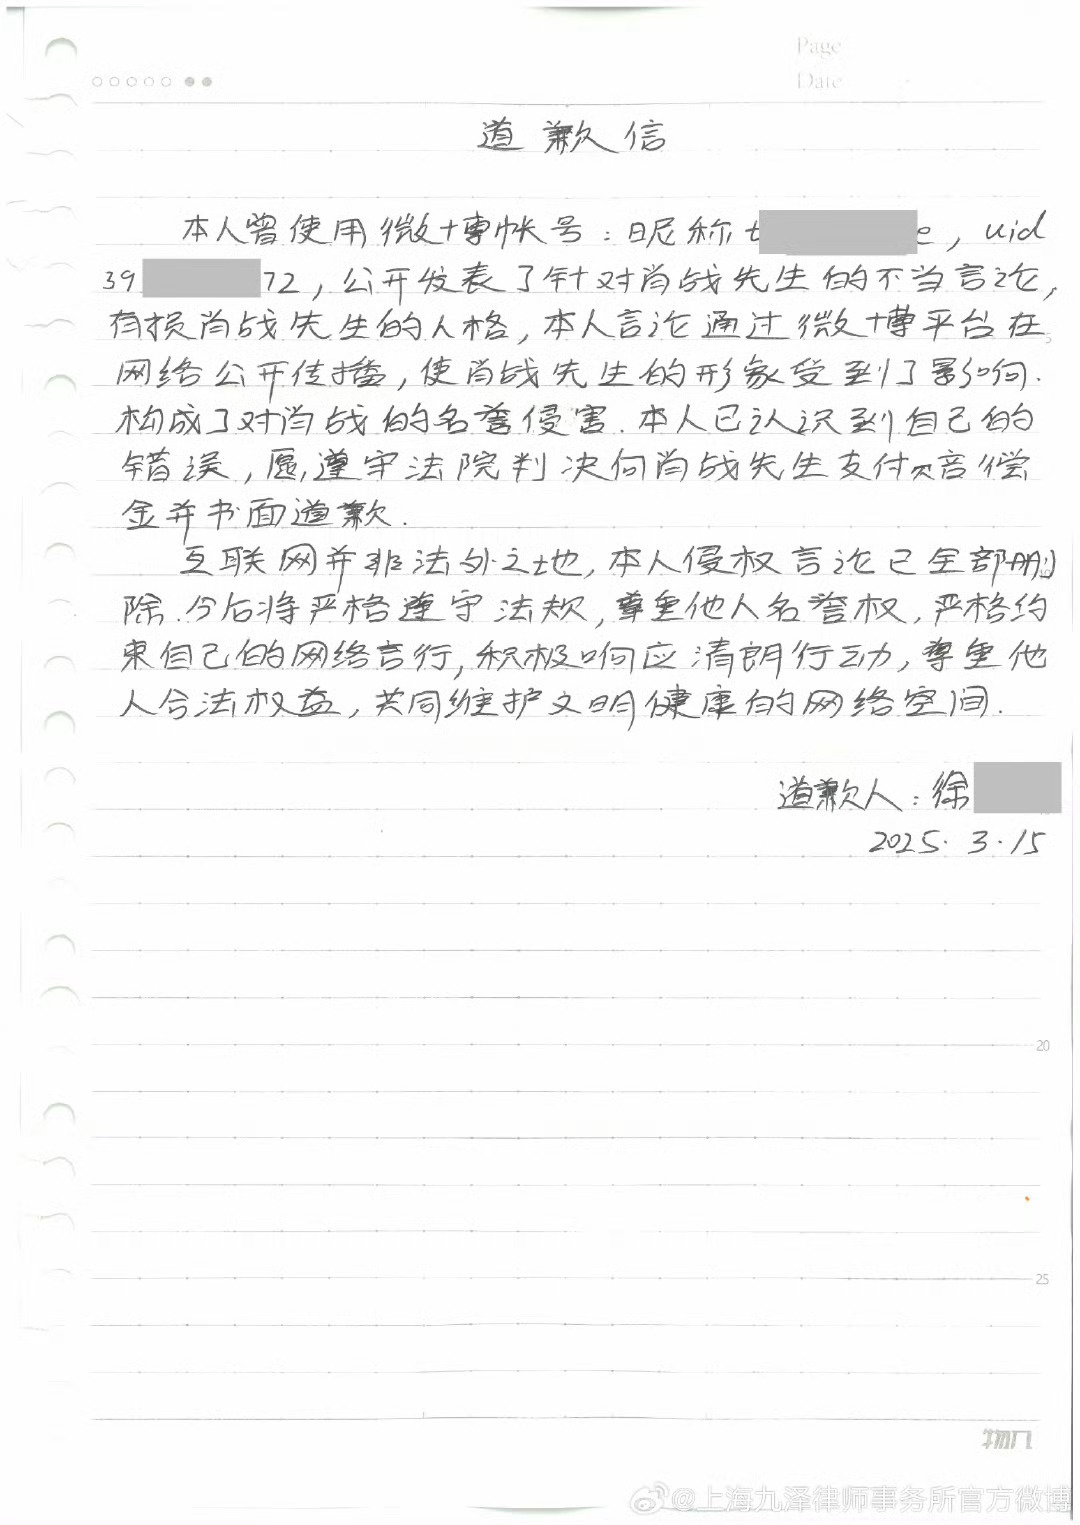 Page
Date
道歉信
本人曾使用微博帐号：昵称t e，uid
39 72，公开发表了针对肖战先生的不当言论，
有损肖战先生的人格，本人言论通过微博平台在
网络公开传播，使肖战先生的形象受到了影响.
构成了对肖战的名誉侵害.本人已认识到自己的
错误，愿遵守法院判决向肖战先生支付赔偿
金并书面道歉.
互联网并非法外之地，本人侵权言论已全部删
除.今后将严格遵守法规，尊重他人名誉权，严格约
束自己的网络言行，积极响应清朗行动，尊重他
人合法权益，共同维护文明健康的网络空间.
道歉人：徐
2025.3.15
20
25
物几
@上海九泽律师事务所官方微博